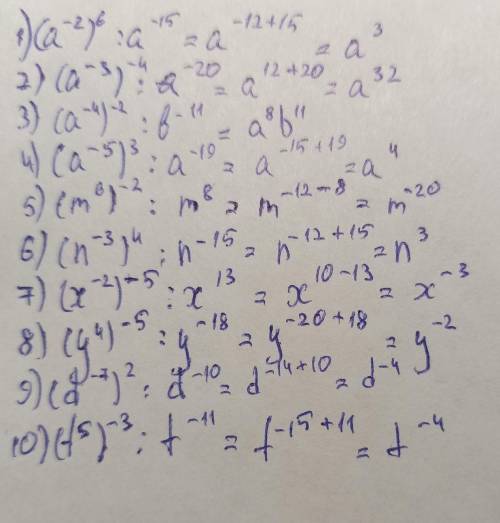 1) (a⁻²)⁶ : a⁻¹⁵ = a⁻¹²⁺¹⁵ = a³
2) (a⁻³)⁻⁴ : a⁻²⁰ = a¹²⁺²⁰ = a³²
3) (a⁻⁴)⁻² : b⁻¹¹ = a⁸b¹¹
4) (a⁻⁵)³ : a⁻¹⁹ = a⁻¹⁵⁺¹⁹ = a⁴
5) (m⁶)⁻² : m⁸ = m⁻¹²⁻⁸ = m⁻²⁰
6) (n⁻³)⁴ : n⁻¹⁵ = n⁻¹²⁺¹⁵ = n³
7) (x⁻²)⁻⁵ : x¹³ = x¹⁰⁻¹³ = x⁻³
8) (y⁴)⁻⁵ : y⁻¹⁸ = y⁻²⁰⁺¹⁸ = y⁻²
9) (d⁻⁷)² : d⁻¹⁰ = d⁻¹⁴⁺¹⁰ = d⁻⁴
10) (t⁵)⁻³ : t⁻¹¹ = t⁻¹⁵⁺¹¹ = t⁻⁴